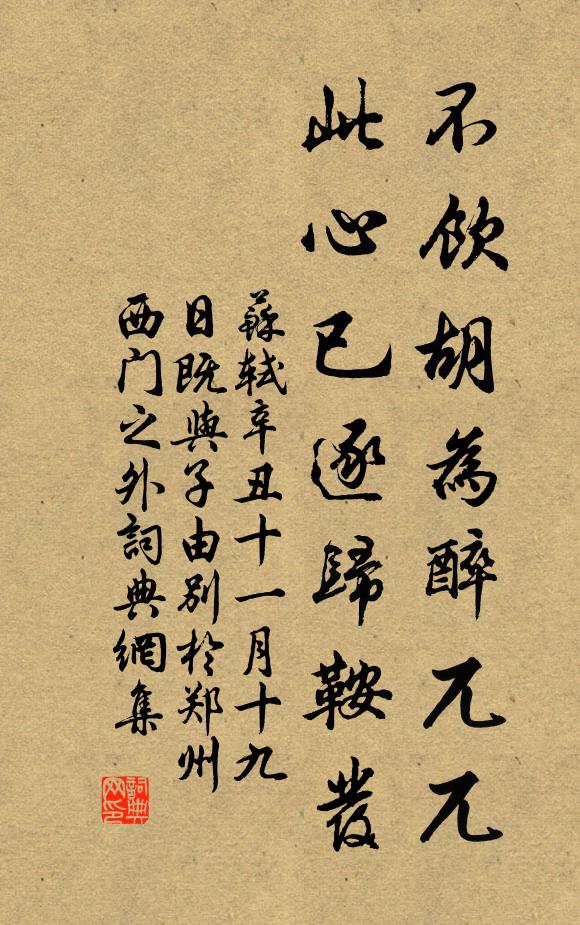 不飲胡為醉兀兀
此心已逐歸鞍發
蘇軾辛丑十一月十九
日既與子由别於郑州
西门之外詞典網集
詞典网印